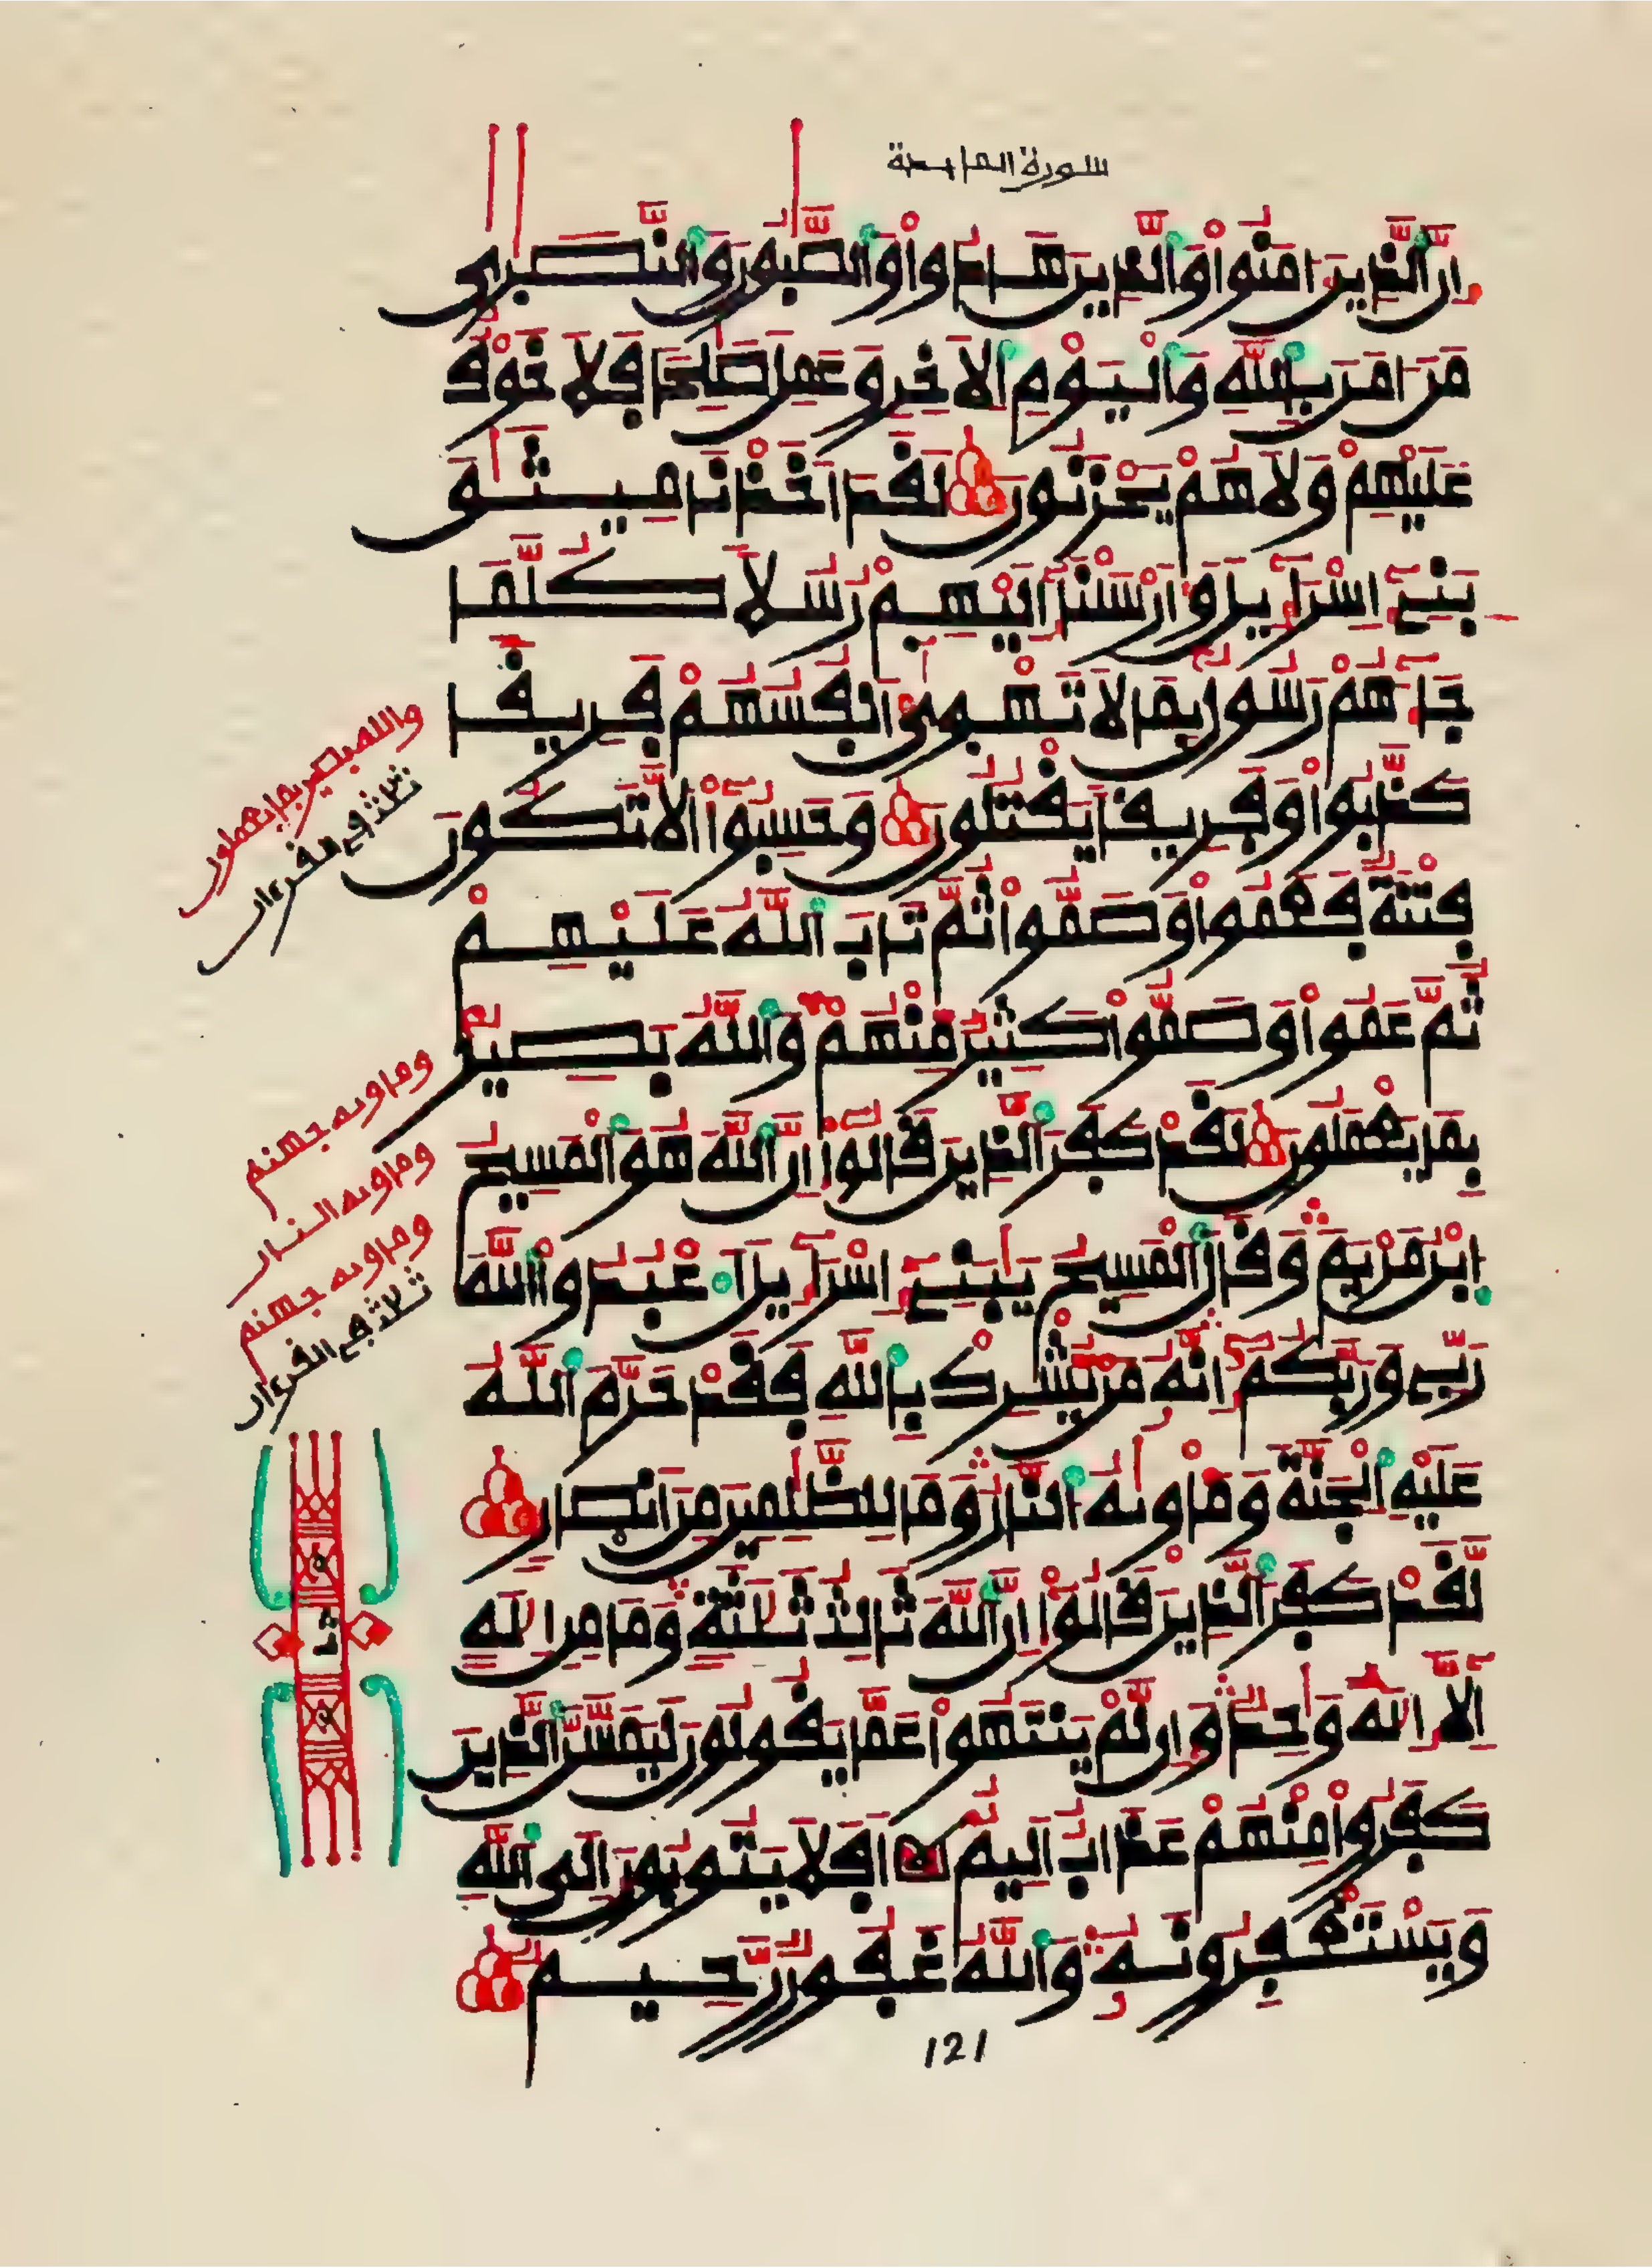 سورة المايدة
إِنَّ ٱلذِينَ ءَامَنُواْ وَٱلذِينَ هَادُواْ وَٱلصَّٰبُونَ وَٱلنَّصَٰرِىٰ
مَنَ ـامَنَ بِاللَّهِ وَٱلْيَوْمِ ٱلَاخِرِ وَعَمِلَ صَٰلِحاٗ فَلَا خَوْفٌ
عَلَيْهِمْ وَلَا هُمْ يَحْزَنُونَ لَقَدَ اَخَذْنَا مِيثَٰقَ
بَنِےٓ إِسْرَآءِيلَ وَأَرْسَلْنَآ إِلَيْهِمْ رُسُلاٗ كُلَّمَا
جَآءَهُمْ رَسُولُۢ بِمَا لَا تَهْو۪ىٰٓ أَنفُسُهُمْ فَرِيقاٗ
كَذَّبُواْ وَفَرِيقاٗ يَقْتُلُونَ وَحَسِبُوٓاْ أَلَّا تَكُونَ
فِتْنَةٞ فَعَمُواْ وَصَمُّواْ ثُمَّ تَابَ ٱللَّهُ عَلَيْهِمْ
ثُمَّ عَمُواْ وَصَمُّواْ كَثِيرٞ مِّنْهُمْ وَٱللَّهُ بَصِيرُۢ
بِمَا يَعْمَلُونَ لَقَدْ كَفَرَ ٱلذِينَ قَالُوٓاْ إِنَّ ٱللَّهَ هُوَ ٱلْمَسِيحُ
ٱبْنُ مَرْيَمَ وَقَالَ ٱلْمَسِيحُ يَٰبَنِےٓ إِسْرَآءِيلَ ٱعْبُدُواْ ٱللَّهَ
رَبِّے وَرَبَّكُمُۥٓ إِنَّهُۥ مَنْ يُّشْرِكْ بِاللَّهِ فَقَدْ حَرَّمَ ٱللَّهُ
عَلَيْهِ ٱلْجَنَّةَ وَمَأْو۪ىٰهُ ٱلنَّارُ وَمَا لِلظَّٰلِمِينَ مِنَ اَنصٰ۪ارٖ
لَّقَدْ كَفَرَ ٱلذِينَ قَالُوٓاْ إِنَّ ٱللَّهَ ثَالِثُ ثَلَٰثَةٖ وَمَا مِنِ اِلَٰهٍ
اِلَّآ إِلَٰهٞ وَٰحِدٞ وَإِن لَّمْ يَنتَهُواْ عَمَّا يَقُولُونَ لَيَمَسَّنَّ ٱلذِينَ
كَفَرُواْ مِنْهُمْ عَذَابٌ اَلِيمٌ اَفَلَا يَتُوبُونَ إِلَى ٱللَّهِ
وَيَسْتَغْفِرُونَهُۥ وَٱللَّهُ غَفُورٞ رَّحِيمٞ
121
والله بصير بما يعملون
ثلاث في القرءان
ومأويه جهنم
ومأويه النار
ومأويه جهنم
ثلاث في القرءان